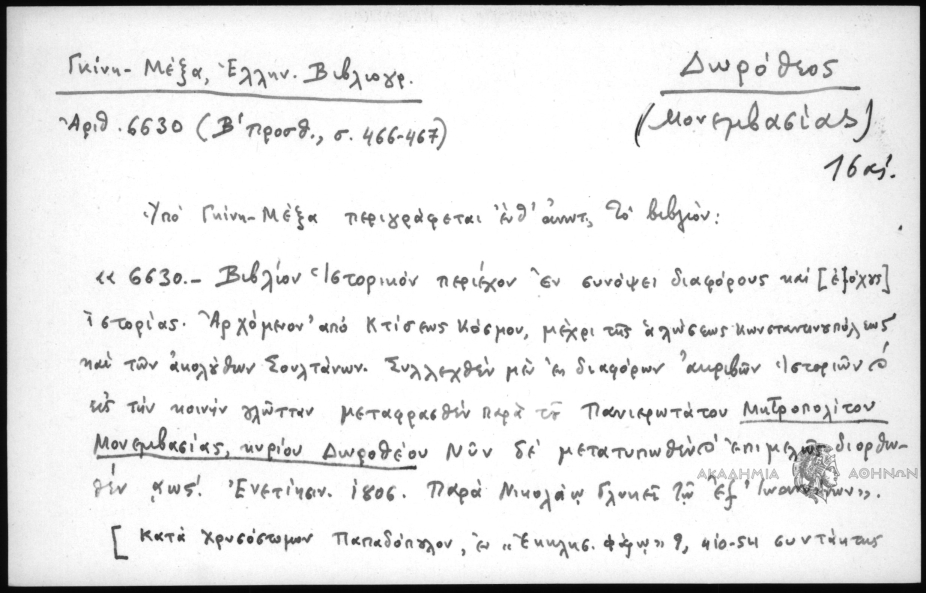 Γκίνη - Μέξα, Ἑλλην. Βιβλιογρ.
Δωρόθεος
Ἀριθ. 6630 (Β' προσθ., σ. 466-467)
(Μονεμβασίας)
16 αἰ.
Ὑπό Γκίνη-Μέξα περιγράφεται τό βιβλίον:
«6630.- Βιβλίον Ἱστορικόν περιέχον ἐν συνόψει διαφόρους καί [ἐξ]όχους
Ἱστορίας. Ἀρχόμενον ἀπό Κτίσεως Κόσμου, μέχρι τῆς ἁλώσεως Κωνσταντινουπόλεως
καί τῶν ἀκολούθων Σουλτάνων. Συλλεχθέν μέν ἐκ διαφόρων ἀκριβῶν Ἱστοριῶν
εἰς τήν κοινήν γλῶτταν μεταφρασθέν παρά τοῦ Πανιερωτάτου Μητροπολίτου
Μονεμβασίας, κυρίου Δωροθέου Νῦν δέ μετατυπωθέν ἐπιμελῶς διορθω-
θέν Ἐνετίησιν. Παρά Νικολάῳ Γλυκεῖ τῷ ἐξ Ἰωαννίνων».
[Κατά Χρυσόστομον Παπαδόπουλον, ἐν «Ἐκκλησ. Φάρῳ» 9, 410-54 συντάκτης
ΑΚΑΔΗΜΙΑ ΑΘΗΝΩΝ